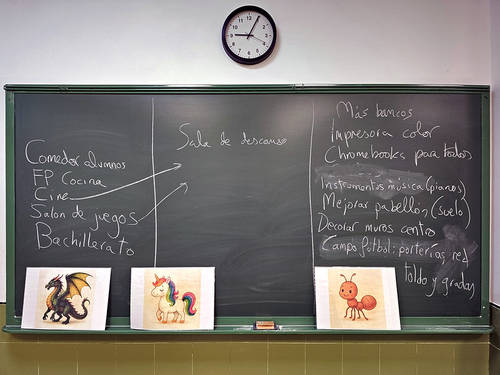 Comedor alumnos
FP Cocina
Cine
Salon de juegos
Bachillerato
Sala de descanso
Más bancos
Impresora color
Chromebooks para todos
Instrumentos música (pianos)
Mejorar pabellón (suelo)
Decorar muros centro
Campo fútbol: porterías red
toldo y gradas